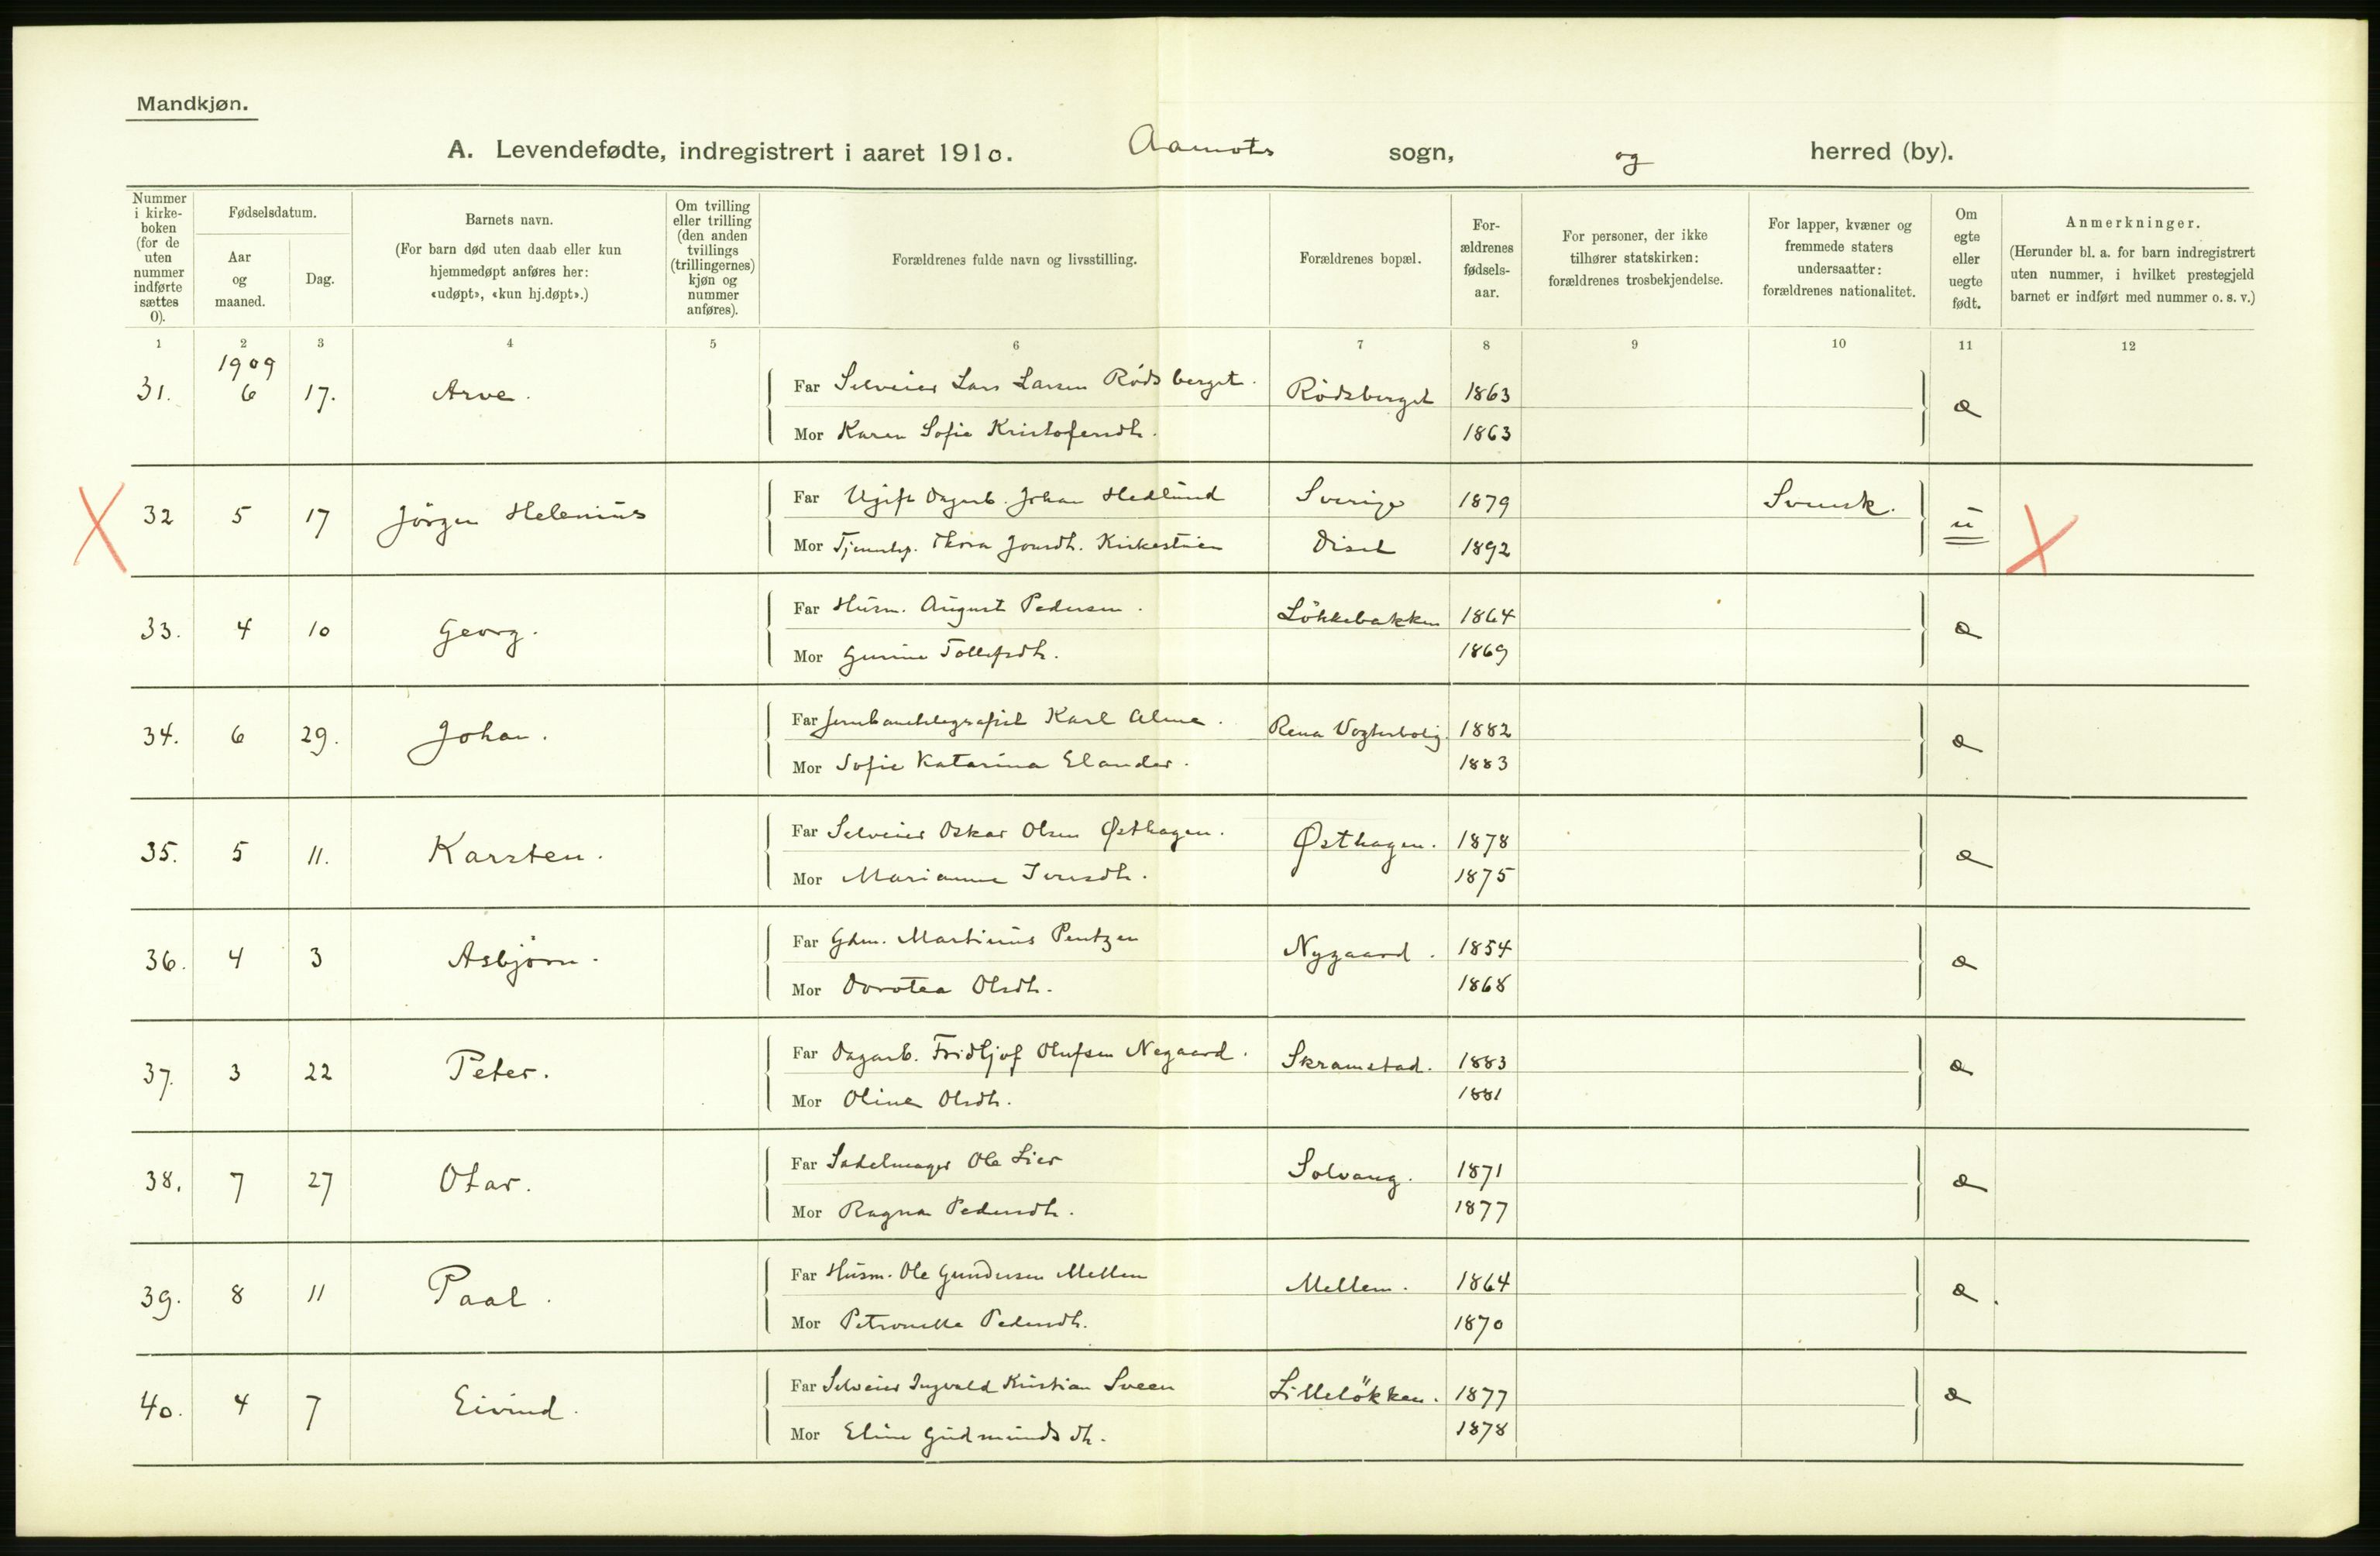 Mandkjøn.
A. Levendefødte, indregistrert i aaret 1910. Aamots sogn, og herred (by).
Nummer i kirke- boken (for de uten nummer indførte sættes 0).
Fødselsdatum.
Aar og maaned.
Dag.
Barnets navn.
(For barn død uten daab eller kun hjemmedøpt anføres her: «udøpt», «kun hj.døpt».)
Om tvilling eller trilling (den anden tvillings (trillingernes) kjøn og nummer anføres).
Forældrenes fulde navn og livsstilling.
Forældrenes bopæl.
For- ældrenes fødsels- aar.
For personer, der ikke tilhører statskirken: forældrenes trosbekjendelse.
For lapper, kvæner og fremmede staters undersaatter: forældrenes nationalitet.
Om egte eller uegte født.
Anmerkninger.
(Herunder bl. a. for barn indregistrert uten nummer, i hvilket prestegjeld barnet er indført med nummer o. s. v.)
1 2 3 4 5 6 7 8 9 10 11 12
1909
31. 6 17. Arve. Far Selveier Lars Larsen Rödsberget. Rödsberget 1863 æ
Mor Karen Sofie Kristofersdtr. 1863
X 32 5 17 Jörgen Helenius Far Ugift Dagarb. Johan Hedlund Sverige 1879 Svensk. u X
Mor Thora Jonsdtr. Kirkestuen Diset 1892
33. 4 10 Georg. Far Husm. August Pedersen. Lökkebakken 1864 æ
Mor Gunine Tollefsdtr. 1869
34. 6 29. Johan. Far Jernbanetelegrafist Karl Alme. Rena Vogterbolig. 1882 æ
Mor Sofie Katarina Elander. 1883
35. 5 11. Karsten. Far Selveier Oskar Olsen Østhagen. Østhagen. 1878 æ
Mor Marianne Iversdtr. 1875
36. 4 3 Asbjörn. Far Gdm. Martinius Pentzen Nygaard. 1854 æ
Mor Dorotea Olsdtr. 1868
37. 3 22 Peter. Far Dagarb. Fridtjof Olufsen Nygaard. Skramstad. 1883 æ
Mor Oline Olsdtr. 1881
38. 7 27 Otar. Far Sadelmager Ole Lier Solvang. 1871 æ
Mor Ragna Pedersdtr. 1877
39. 8 11 Paal. Far Husm. Ole Gundersen Mellem Mellem. 1864 æ.
Mor Petronelle Pedersdtr. 1870
40. 4 7 Eivind. Far Selveier Ingvald Kristian Sveen Lillelökken. 1877 æ
Mor Eline Gudmundsdtr. 1878